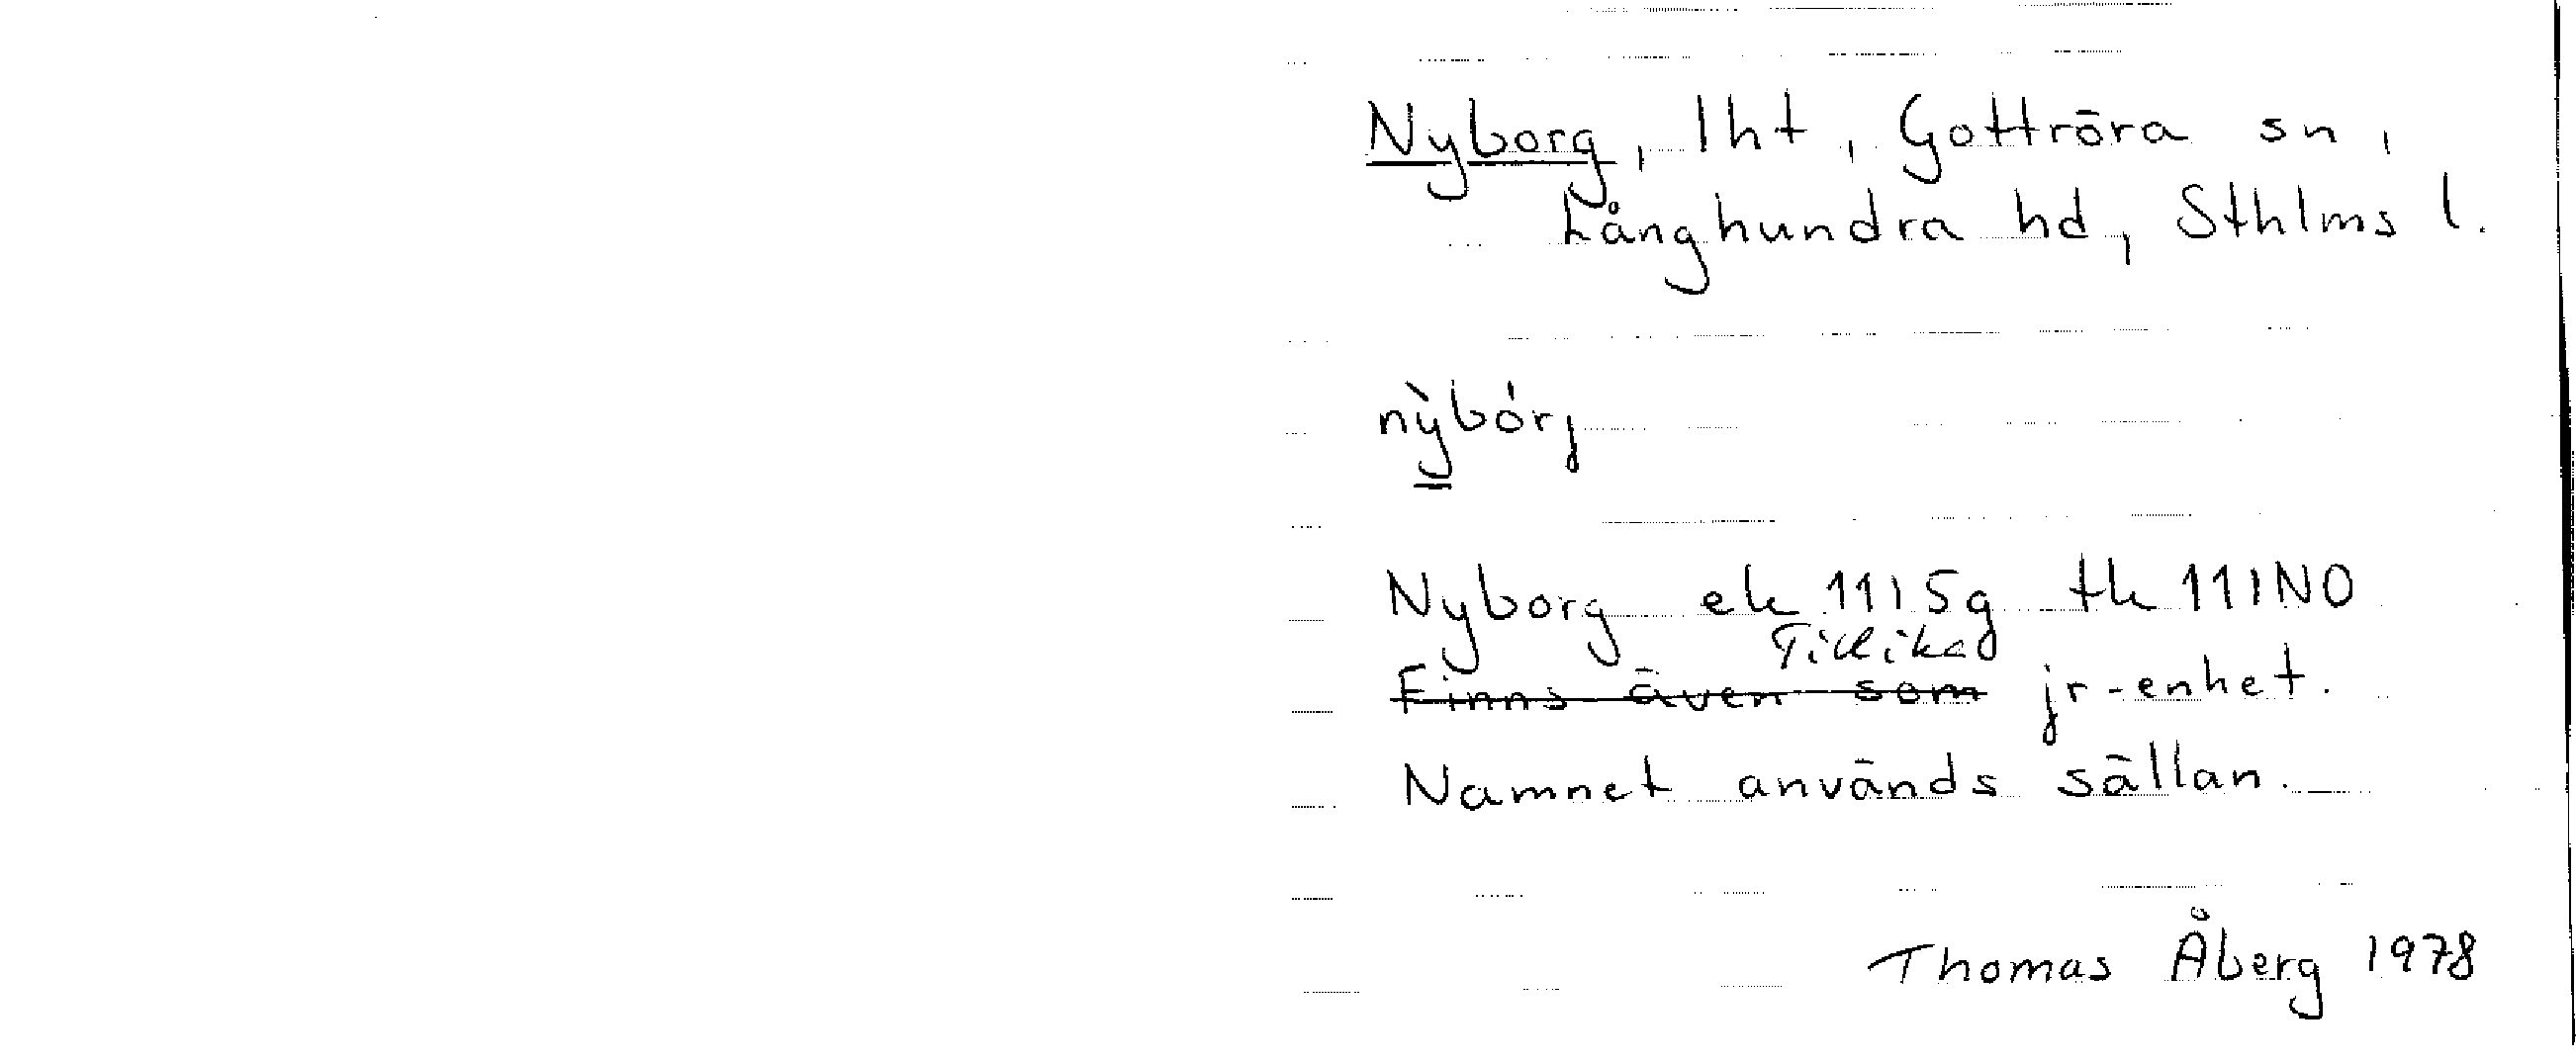 Nyborg, lht, Gottröra sn,
Långhundra hd, Sthlms l.
nỳbórj
Nyborg ek 11I5g tk 11INO
Tillika
Finns även som jr-enhet.
Namnet används sällan.
Thomas Åberg 1978